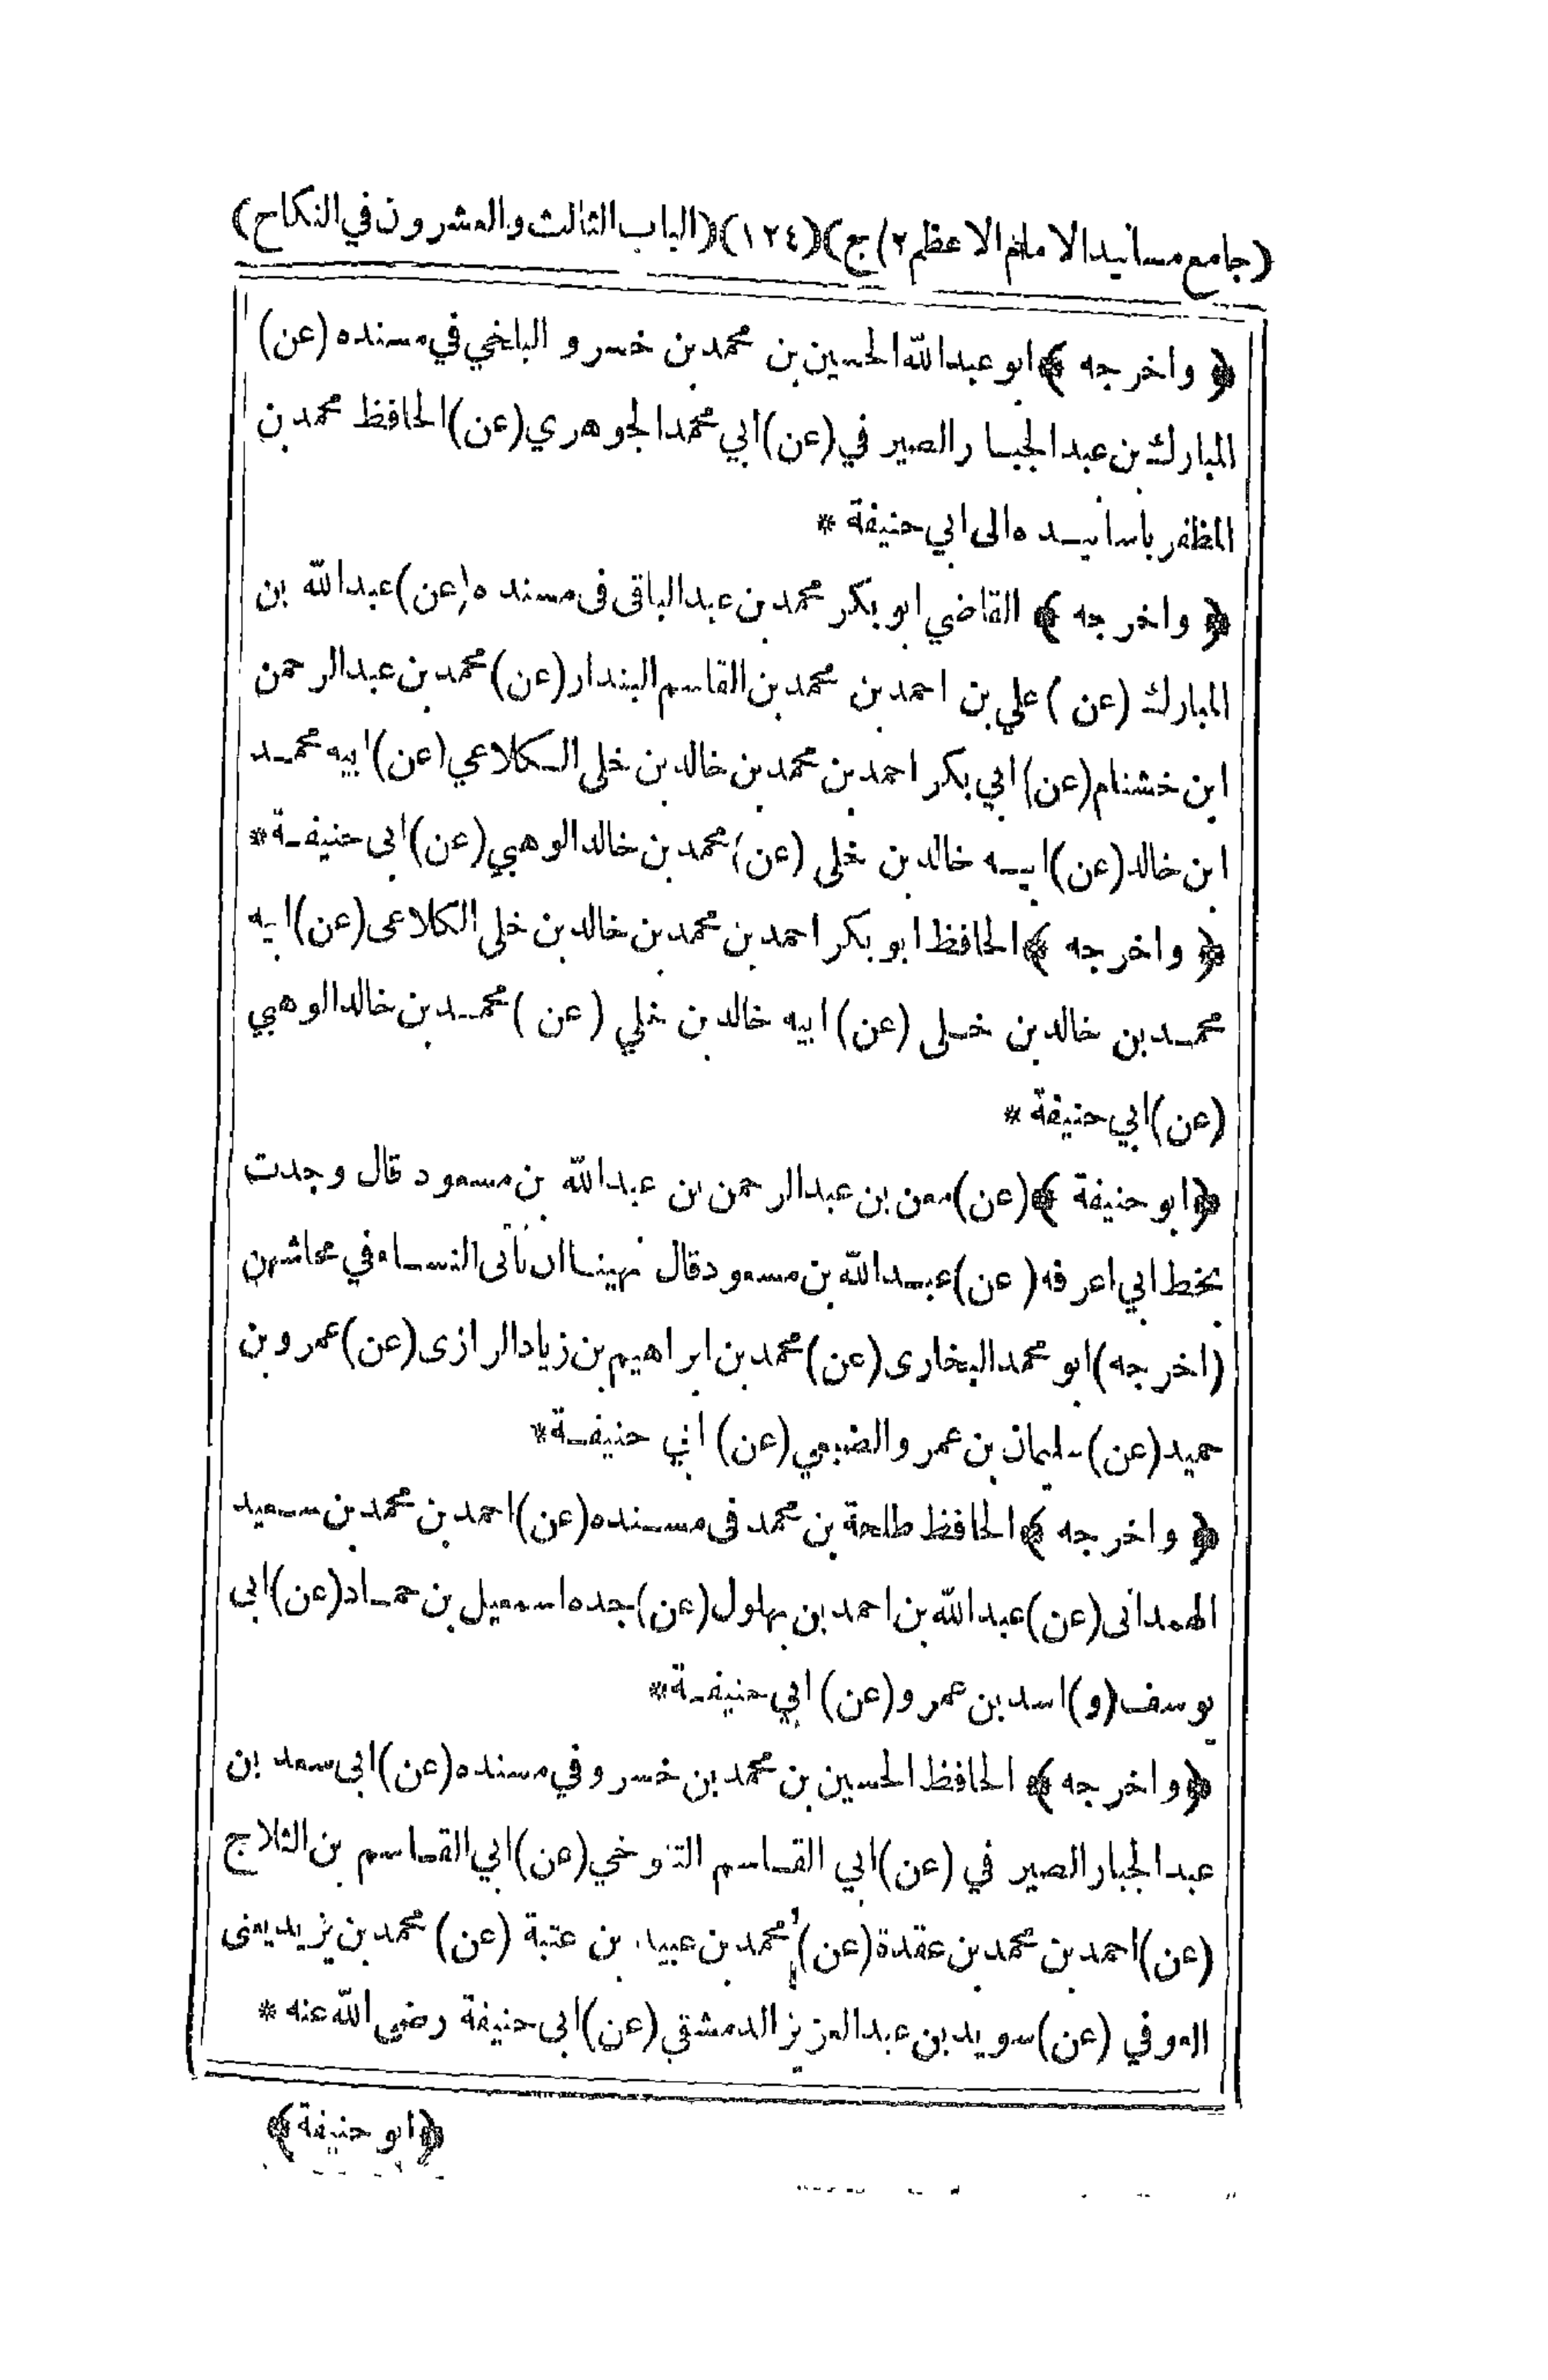 (جامع مسانيد الامام الاعظم ٢) ج) (١٢٤) (الباب الثالث والعشرون في النكاح)
﴿ واخرجه ﴾ ابو عبدالله الحسين بن محمد بن خسرو البلخي في مسنده (عن)
المبارك بن عبدالجبار الصيرفي (عن) ابي محمد الجوهري (عن) الحافظ محمد بن
المظفر باسانيده الى ابي حنيفة *
﴿ واخرجه ﴾ القاضي ابو بكر محمد بن عبدالباقى فى مسنده (عن) عبدالله بن
المبارك (عن) علي بن احمد بن محمد بن القاسم البندار (عن) محمد بن عبدالرحمن
ابن خشنام (عن) ابي بكر احمد بن محمد بن خالد بن خلى الكلاعي (عن) ابيه محمد
ابن خالد (عن) ابيه خالد بن خلى (عن) محمد بن خالد الوهبي (عن) ابى حنيفة *
﴿ واخرجه ﴾ الحافظ ابو بكر احمد بن محمد بن خالد بن خلى الكلاعى (عن) ابيه
محمد بن خالد بن خلى (عن) ابيه خالد بن خلي (عن) محمد بن خالد الوهبي
(عن) ابي حنيفة *
﴿ ابو حنيفة ﴾ (عن) معن بن عبدالرحمن بن عبدالله بن مسعود قال وجدت
بخط ابي اعرفه (عن) عبدالله بن مسعود قال نهينا ان نأتى النساء في محاشهن
(اخرجه) ابو محمد البخارى (عن) محمد بن ابراهيم بن زياد الرازى (عن) عمرو بن
حميد (عن) سليمان بن عمرو الضبعي (عن) ابي حنيفة *
﴿ واخرجه ﴾ الحافظ طلحة بن محمد فى مسنده (عن) احمد بن محمد بن سعيد
الهمدانى (عن) عبدالله بن احمد بن بهلول (عن) جده اسمعيل بن حماد (عن) ابى
يوسف (و) اسد بن عمرو (عن) ابي حنيفة *
﴿ واخرجه ﴾ الحافظ الحسين بن محمد بن خسرو في مسنده (عن) ابى سعد بن
عبدالجبار الصيرفي (عن) ابي القاسم التنوخي (عن) ابي القاسم بن الثلاج
(عن) احمد بن محمد بن عقدة (عن) محمد بن عبيد بن عتبة (عن) محمد بن يزيد يعنى
العوفي (عن) سويد بن عبدالعزيز الدمشقي (عن) ابى حنيفة رضى الله عنه *
﴿ ابو حنيفة ﴾